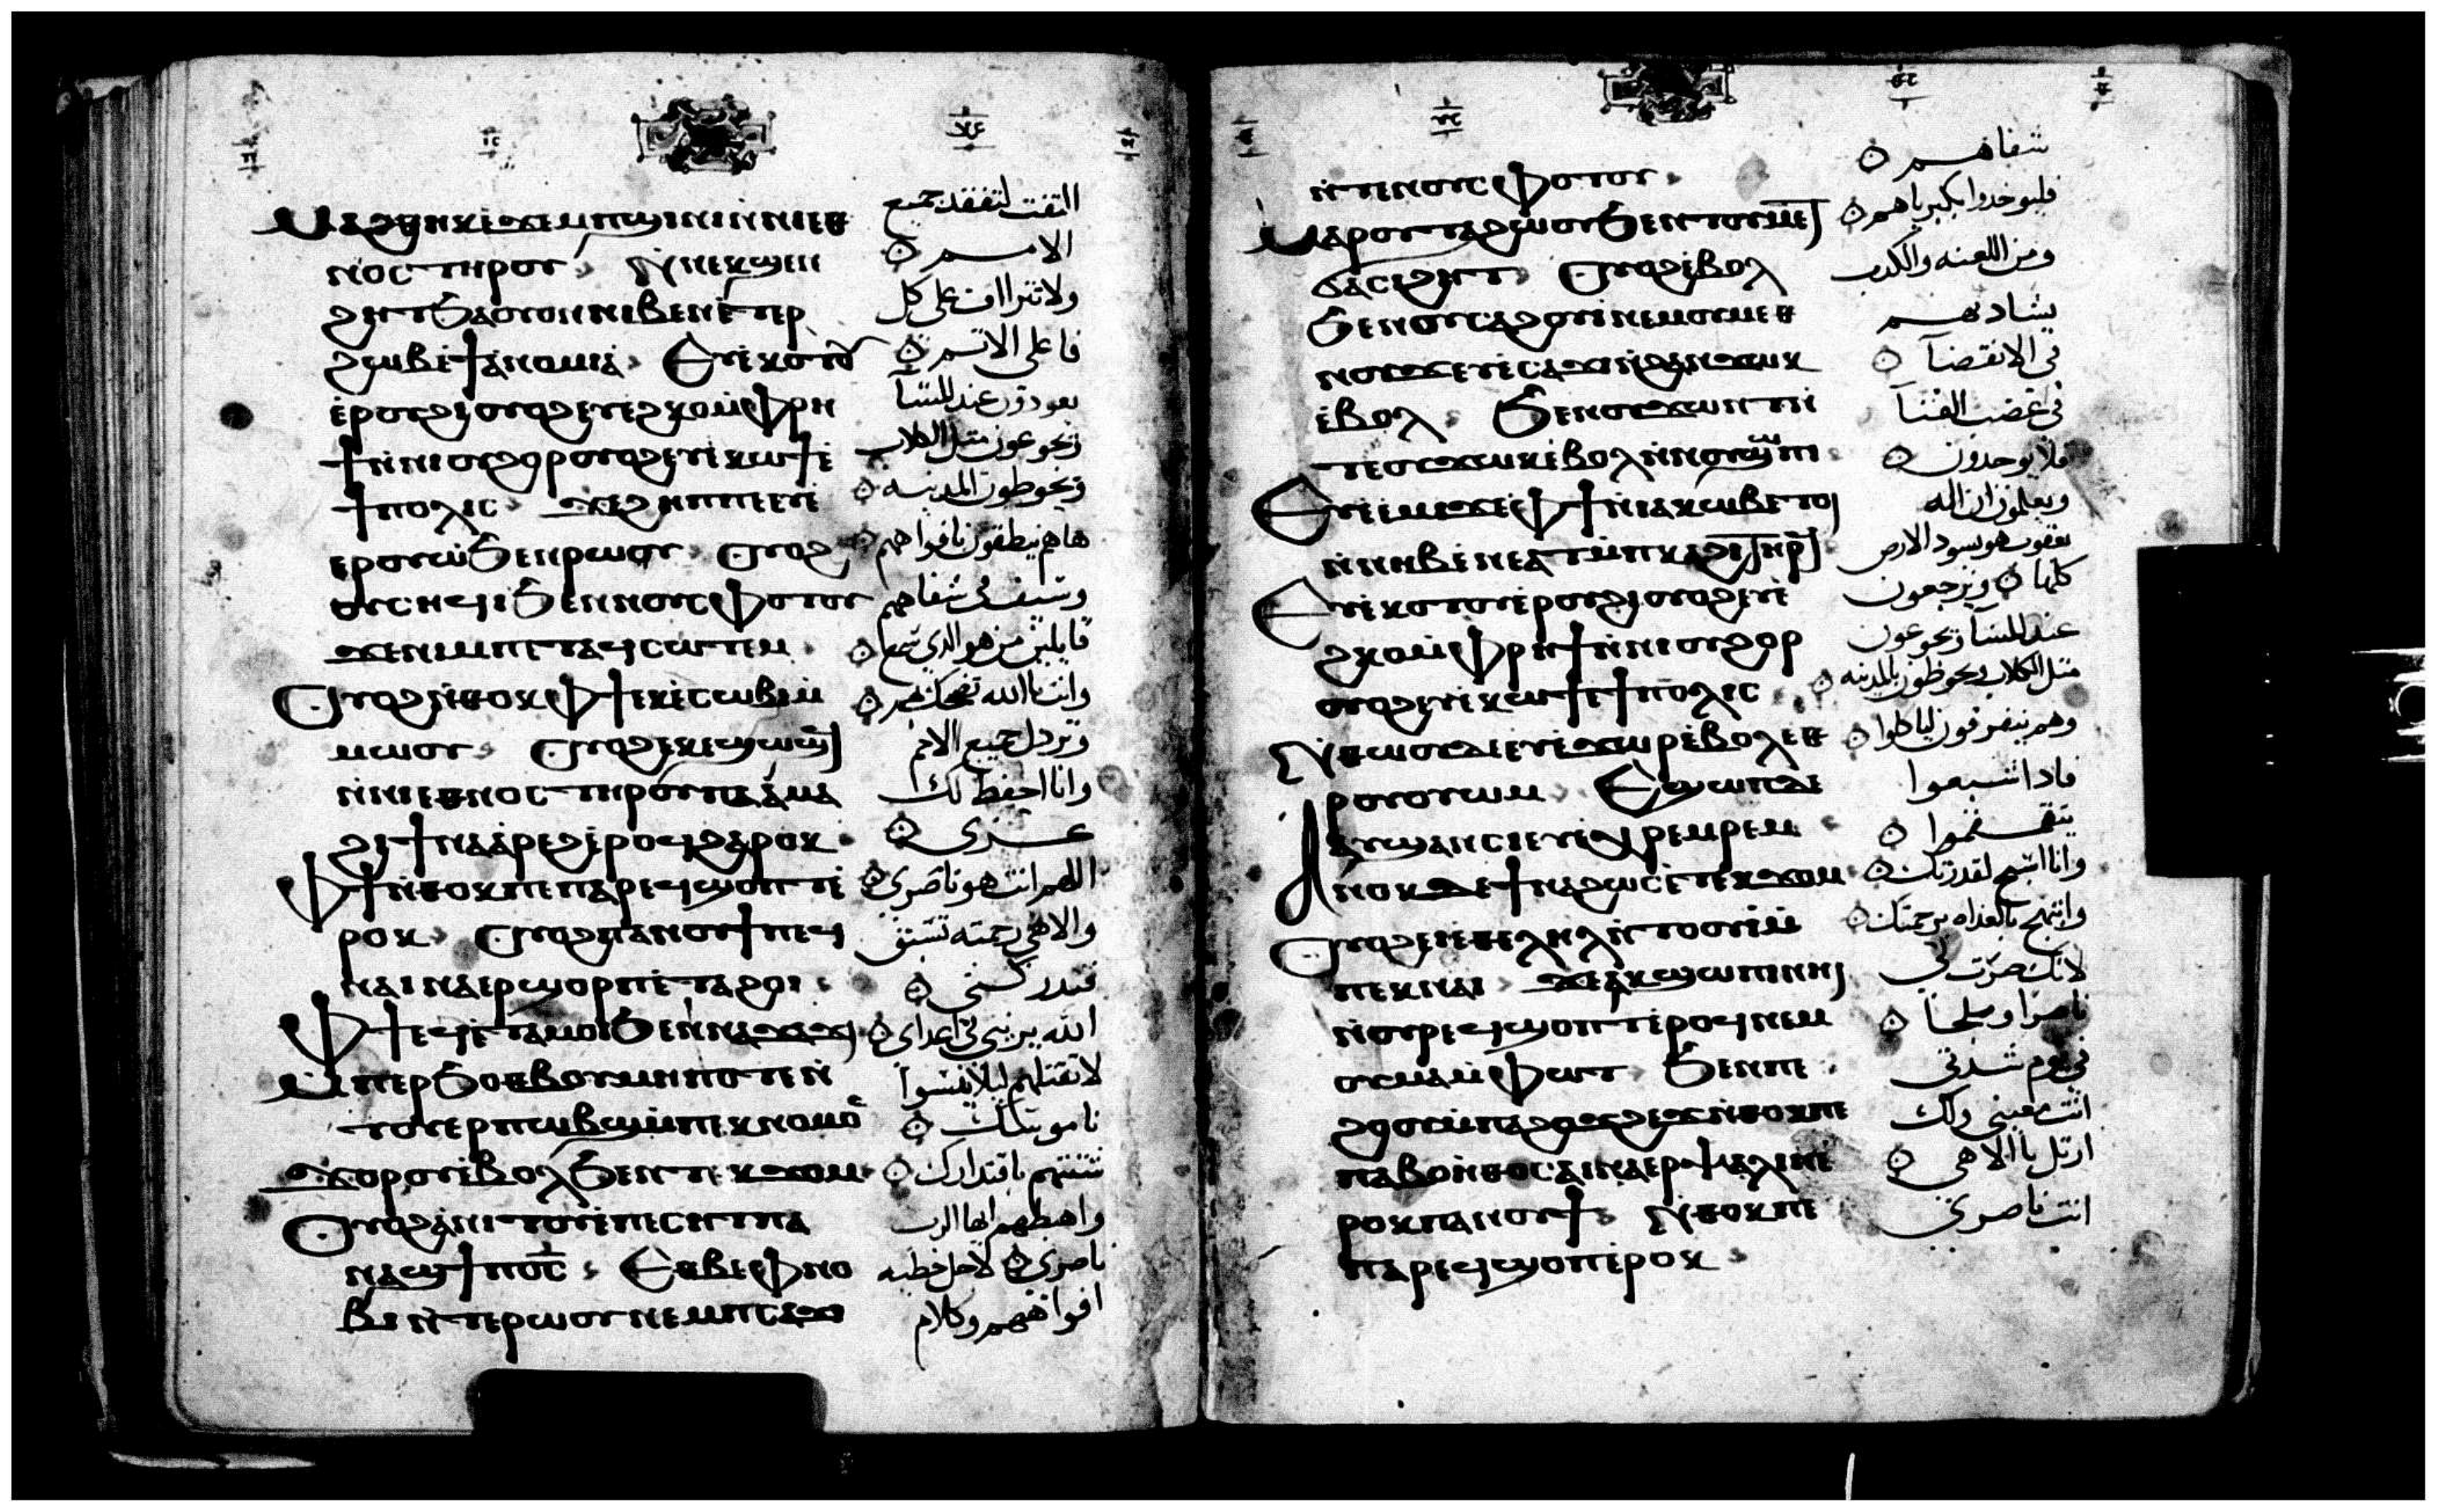 Ⲙⲁϩⲑⲏⲕ ⲉϫⲉⲙⲡϣⲓⲛⲓ ⲛⲛⲓⲉⲑ
ⲛⲟⲥ ⲧⲏⲣⲟⲩ ⲛⲛⲉⲕϣⲉⲛ
ϩⲏⲧ ϧⲁ ⲟⲩⲟⲛ ⲛⲓⲃⲉⲛ ⲉⲧⲉⲣ
ϩⲱⲃ ⲉϯⲁⲛⲟⲙⲓⲁ Ⲉⲩⲉⲕⲟⲧⲟⲩ
ⲉⲣⲟⲩϩⲓ ⲟⲩⲟϩ ⲉⲩⲉϩⲕⲟ ⲙⲫⲣⲏ
ϯ ⲛⲛⲓⲟⲩϩⲟⲣ ⲟⲩⲟϩ ⲉⲩⲉⲕⲱϯ ⲉ
ϯⲡⲟⲗⲓⲥ ϫⲉϩⲏⲡⲡⲉ ⲉⲩⲉ
ⲉⲣⲟⲩⲱ ϧⲉⲛⲣⲱⲟⲩ Ⲟⲩⲟϩ
ⲟⲩⲥⲏϥⲓ ϧⲉⲛⲛⲟⲩⲥⲫⲟⲧⲟⲩ
ϫⲉⲛⲓⲙ ⲡⲉⲧⲁϥⲥⲱⲧⲉⲙ
Ⲟⲩⲟϩ ⲛⲑⲟⲕ ⲫϯ ⲉⲕⲉⲥⲱⲃⲓ ⲙ
ⲙⲱⲟⲩ Ⲟⲩⲟϩ ⲉⲕⲉϣⲱϣϥ
ⲛⲛⲓⲉⲑⲛⲟⲥ ⲧⲏⲣⲟⲩ ⲡⲁⲁⲙⲁ
ϩⲓ ϯⲛⲁⲁⲣⲉϩ ⲉⲣⲟϥ ϩⲁⲣⲟⲕ
Ⲫϯ ⲛⲑⲟⲕ ⲡⲉ ⲡⲁⲣⲉϥϣⲟⲡⲧ ⲉ
ⲣⲟⲕ Ⲟⲩⲟϩ ⲡⲁⲛⲟⲩϯ ⲡⲉϥ
ⲛⲁⲓ ⲛⲁⲉⲣϣⲟⲣⲡ ⲉⲧⲁϩⲟⲓ
Ⲫϯ ⲉϥⲉⲧⲁⲙⲟⲓ ϧⲉⲛⲛⲁϫⲁϫⲓ
Ⲙⲡⲉⲣϧⲟⲑⲃⲟⲩ ⲙⲏⲡⲟⲧⲉ ⲛ
ⲧⲟⲩⲉⲣⲡⲱⲃϣ ⲙⲡⲉⲕⲛⲟⲙⲟⲥ
ϫⲟⲣⲟⲩ ⲉⲃⲟⲗ ϧⲉⲛⲧⲉⲕϫⲟⲙ
Ⲟⲩⲟϩ ⲁⲛⲓⲧⲟⲩ ⲉⲡⲉⲥⲏⲧ ⲡⲁ
ⲛⲁϣϯ ⲡⲟⲥ Ⲉⲑⲃⲉ ⲫⲛⲟ
ⲃⲓ ⲛⲧⲉⲣⲱⲟⲩ ⲛⲉⲙⲡⲥⲁϫⲓ
التفت لتفقد جميع
الامم
ولا تتراف على كل
فاعلي الاثم
يعودون عند المسا
ويجوعون مثل الكلاب
ويحوطون المدينه
هاهم ينطقون بافواههم
وسيف في شفاههم
قايلين من هو الذي سمع
وانت يا الله تضحك بهم
وترذل جميع الامم
وانا احفظ لك
عزي
اللهم انت هو ناصري
والاهي رحمته تسبق
فتدركني
الله يريني في اعداي
لا تقتلهم ليلا ينسوا
ناموسك
شتتهم باقتدارك
واهبطهم ايها الرب
ناصري لاجل خطيه
افواههم وكلام
ⲛⲧⲉⲛⲟⲩⲥⲫⲟⲧⲟⲩ
Ⲙⲁⲣⲟⲩⲧⲁϩⲱⲟⲩ ϧⲉⲛⲧⲟⲩⲙⲉⲧ
ϭⲁⲥⲓϩⲏⲧ Ⲟⲩⲟϩ ⲉⲃⲟⲗ
ϧⲉⲛⲟⲩⲥⲁϩⲟⲩⲓ ⲛⲉⲙⲟⲩⲙⲉⲑ
ⲛⲟⲩϫ ⲉⲩⲉⲥⲁϫⲓ ⲛϩⲁⲛϫⲱⲕ
ⲉⲃⲟⲗ ϧⲉⲛⲟⲩϫⲱⲛⲧ ⲛ
ⲧⲉⲟⲩϫⲱⲕ ⲉⲃⲟⲗ ⲛⲛⲟⲩϣⲱⲡⲓ
Ⲉⲩⲉⲉⲙⲓ ϫⲉ ⲫϯ ⲛⲓⲁⲕⲱⲃ ⲉⲧⲟⲓ
ⲛⲛⲏⲃ ⲛⲉⲁⲧϥ ⲙⲡⲕⲁϩⲓ ⲧⲏⲣϥ
Ⲉⲩⲉⲕⲟⲧⲟⲩ ⲉⲣⲟⲩϩⲓ ⲟⲩⲟϩ ⲉⲩⲉ
ϩⲕⲟ ⲙⲫⲣⲏϯ ⲛⲛⲓⲟⲩϩⲟⲣ
ⲟⲩⲟϩ ⲉⲩⲉⲕⲱϯ ⲉϯⲡⲟⲗⲓⲥ
Ⲛⲑⲱⲟⲩ ⲇⲉ ⲉⲩⲉϫⲱⲣ ⲉⲃⲟⲗ ⲉⲑ
ⲣⲟⲩⲟⲩⲱⲙ Ⲉϣⲱⲡ ⲇⲉ
ⲁⲩϣⲁⲛⲥⲓ ⲉⲩⲉⲭⲣⲉⲙⲣⲉⲙ
Ⲁⲛⲟⲕ ⲇⲉ ϯⲛⲁϩⲱⲥ ⲉⲧⲉⲕϫⲟⲙ
Ⲟⲩⲟϩ ⲉⲓⲉⲑⲉⲗⲏⲗ ⲛⲧⲟⲟⲩⲓ ⲙ
ⲡⲉⲕⲛⲁⲓ ϫⲉ ⲁⲕϣⲱⲡⲓ ⲛⲏⲓ
ⲛⲟⲩⲣⲉϥϣⲟⲡⲧ ⲉⲣⲟϥ ⲛⲉⲙ
ⲟⲩⲙⲁⲙⲫⲱⲧ ϧⲉⲛⲡⲉ
ϩⲟⲟⲩ ⲙⲡⲁϩⲟϫϩⲉϫ ⲛⲑⲟⲕ ⲡⲉ
ⲡⲁⲃⲟⲏⲑⲟⲥ ⲁⲓⲛⲁⲉⲣⲯⲁⲗⲓⲛ ⲉ
ⲣⲟⲕ ⲡⲁⲛⲟⲩϯ Ⲛⲑⲟⲕ ⲡⲉ
ⲡⲁⲣⲉϥϣⲟⲡⲧ ⲉⲣⲟⲕ
شفاههم
فليوخذوا بكبرياهم
ومن اللعنه والكذب
في الانقضا
في غضب الفنا
فلا يوجدون
ويعلمون ان اله
يعقوب هو يسود الارض
كلها ويرجعون
عند المسا ويجوعون
مثل الكلاب ويحوطون بالمدينه
وهم يتفرقون لياكلوا
فاذا شبعوا
يتقمقموا
وانا اسبح لقدرتك
وابتهج بالغداه برحمتك
لانك صرت لي
ناصرا وملجا
في يوم شدتي
انت معيني ولك
ارتل يا الاهي
انت ناصري